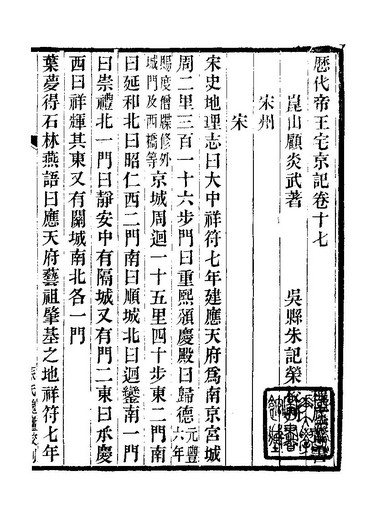 歷代帝王宅京記卷十七
崑山顧炎武著 吳縣朱記榮
宋州
宋
宋史地理志曰大中祥符七年建應天府爲南京宮城
周二里三百一十六步門曰重熙頒慶殿曰歸德元豐六年
賜度僧牒修外城門及西橋等京城周迴一十五里四十步東二門南
曰延和北曰昭仁西二門南曰順城北曰迴鑾南一門
曰崇禮北一門曰靜安中有隔城又有門二東曰承慶
西曰祥輝其東又有關城南北各一門
葉夢得石林燕語曰應天府藝祖肇基之地祥符七年